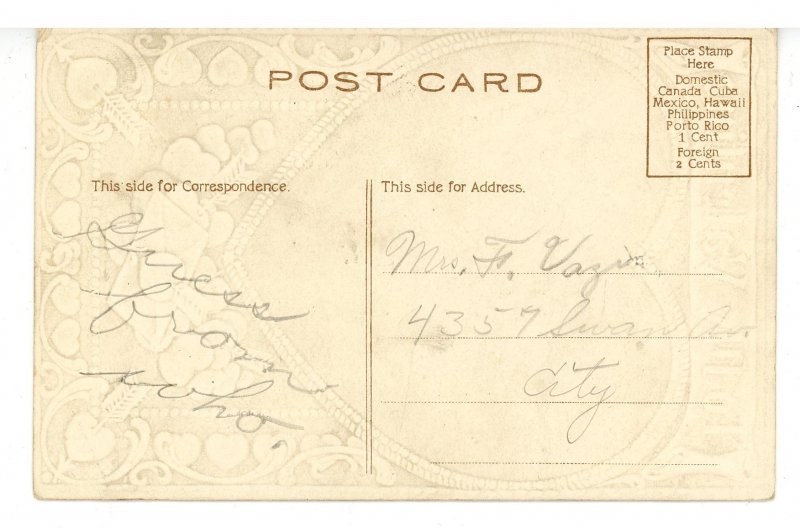 POST CARD
Place Stamp
Here
Domestic
Canada Cuba
Mexico, Hawaii
Philippines
Porto Rico
1 Cent
Foreign
2 Cents
This side for Correspondence.
Guess
from
who.
This side for Address.
Mrs. F.
4357 Swan Av.
City